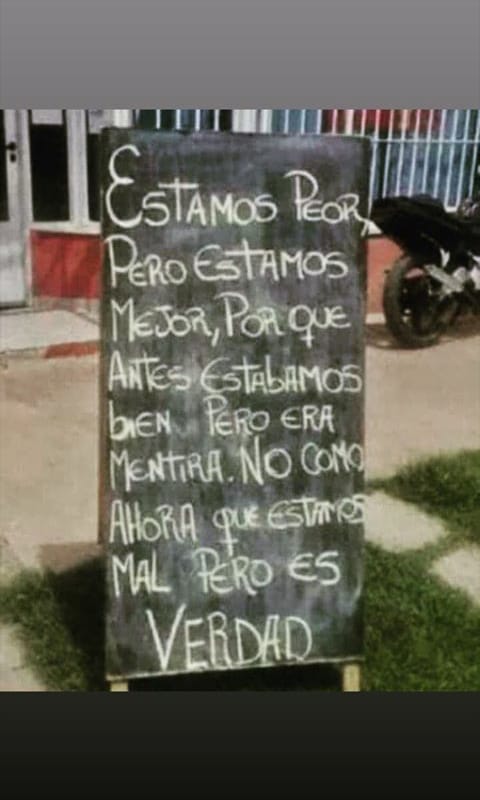 Estamos Peor,
Pero Estamos
Mejor, Por que
Antes Estabamos
bien Pero era
Mentira. No como
Ahora que estamos
Mal Pero es
Verdad